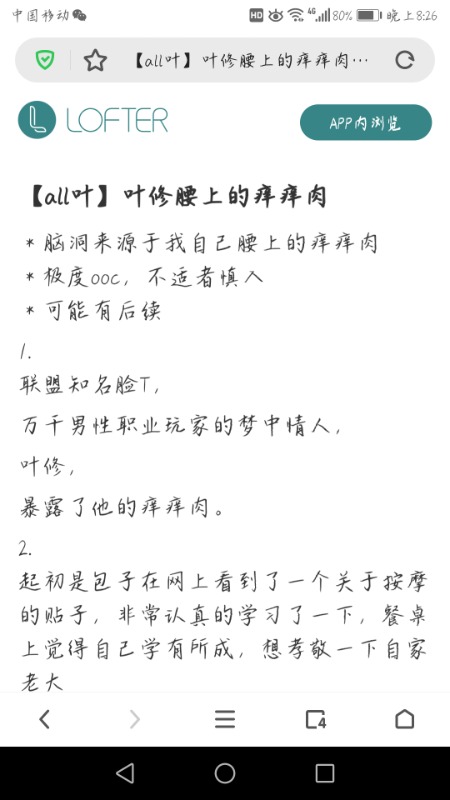 中国移动
HD 4G 80% 晚上8:26
【all叶】叶修腰上的痒痒肉…
LOFTER
APP内浏览
【all叶】叶修腰上的痒痒肉
*脑洞来源于我自己腰上的痒痒肉
*极度ooc，不适者慎入
*可能有后续
1.
联盟知名脸T，
万千男性职业玩家的梦中情人，
叶修，
暴露了他的痒痒肉。
2.
起初是包子在网上看到了一个关于按摩
的贴子，非常认真的学习了一下，餐桌
上觉得自己学有所成，想孝敬一下自家
老大
4